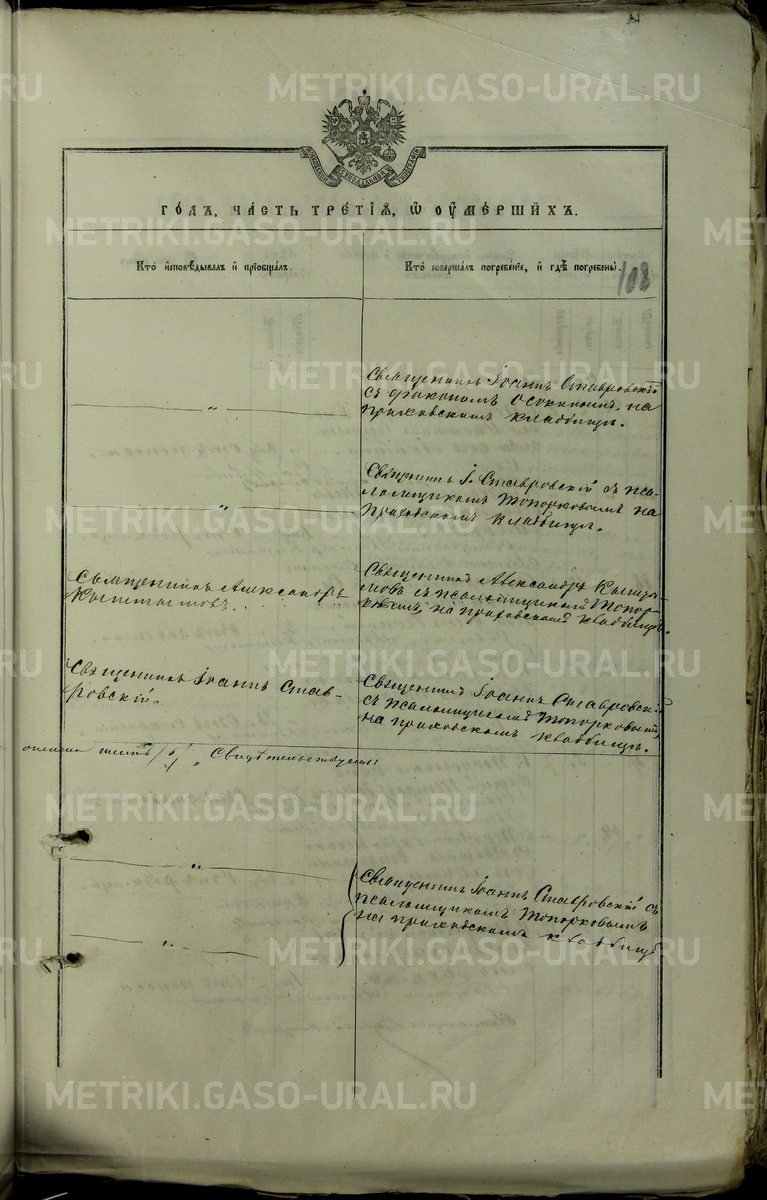 METRIKI.GASO-URAL.RU
МОСКОВСКОЙ СѴНОДАЛЬНОЙ ТИПОГРАФІИ
ГО́ДЪ, ЧА́СТЬ ТРЕ́ТІѦ, Ѡ ОУМЕ́РШИХЪ.
Кто̀ и҆сповѣ́дывалъ и҆ прїѡбща́лъ.
Кто̀ соверша́лъ погребе́нїе, и҆ гдѣ̀ погребены̀.
108
Священникъ Іоаннъ Ставровскій
съ діакономъ Осокинымъ, на
приходскомъ кладбищѣ.
"
Священникъ І. Ставровскій съ пса-
ломщикомъ Топорковымъ на
приходскомъ кладбищѣ.
"
Священникъ Александръ
Священникъ Александръ
съ псаломщикомъ Топор-
ковымъ, на приходскомъ кладбищѣ.
Священникъ Іоаннъ Став-
ровскій.
Священникъ Іоаннъ Ставровскій
съ псаломщикомъ Топорковымъ,
на приходскомъ кладбищѣ.
Свидѣтельствуемъ
"
Священникъ Іоаннъ Ставровскій съ
псаломщикомъ Топорковымъ
на приходскомъ кладбищѣ
"